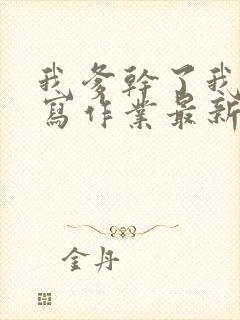 我爹幹了我
寫作業最新
金丹